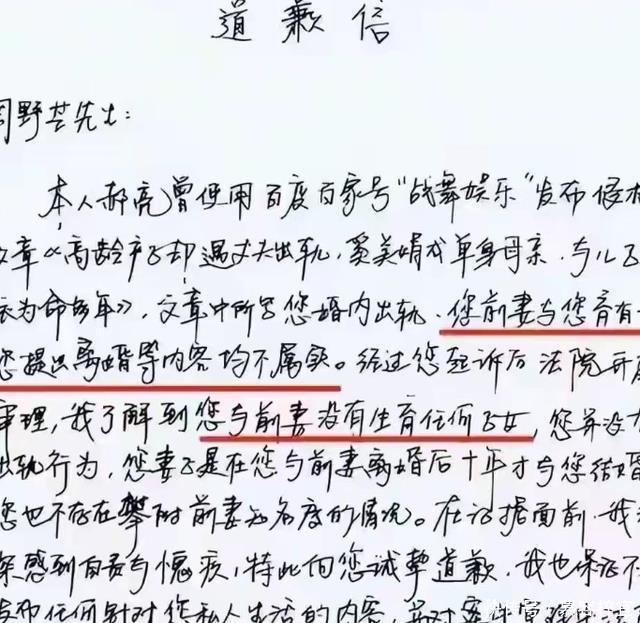 道歉信
周野芒先生：
本人郝亮曾使用百度百家号“战舞娱乐”发布侵权
文章《高龄产子却遇丈夫出轨，奚美娟成单身母亲，与儿子
依为命多年》，文章中所写您婚内出轨、您前妻与您育有一
您提出离婚等内容均不属实。经过您起诉后法院开庭
审理，我了解到您与前妻没有生育任何子女，您并没有
出轨行为，您妻子是在您与前妻离婚后十年才与您结婚
您也不存在攀附前妻知名度的情况。在证据面前，我
深感到自责与愧疚，特此向您诚挚道歉，我也保证不
发布任何针对您私人生活的内容，并对